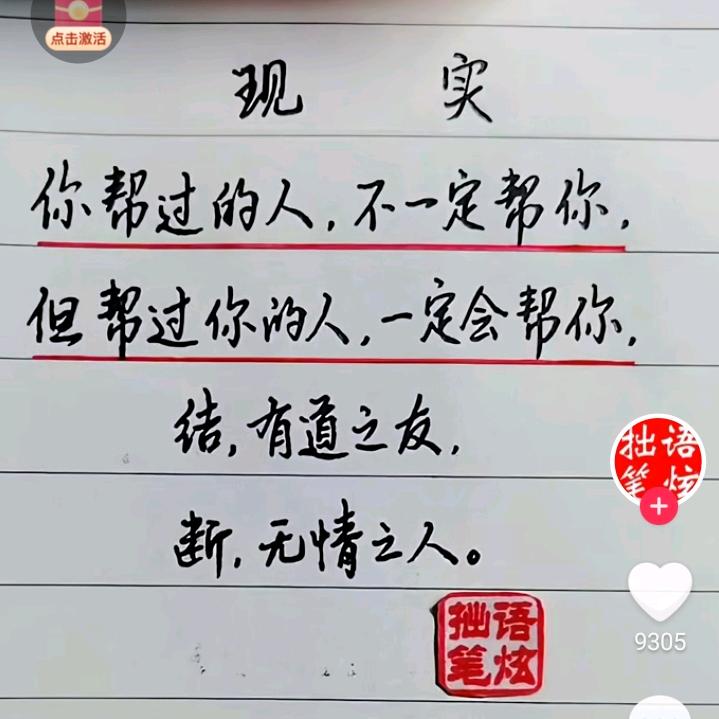 点击激活
现 实
你帮过的人,不一定帮你,
但帮过你的人,一定会帮你,
结,有道之友,
断,无情之人。
拙语
笔炫
拙语
笔炫
9305